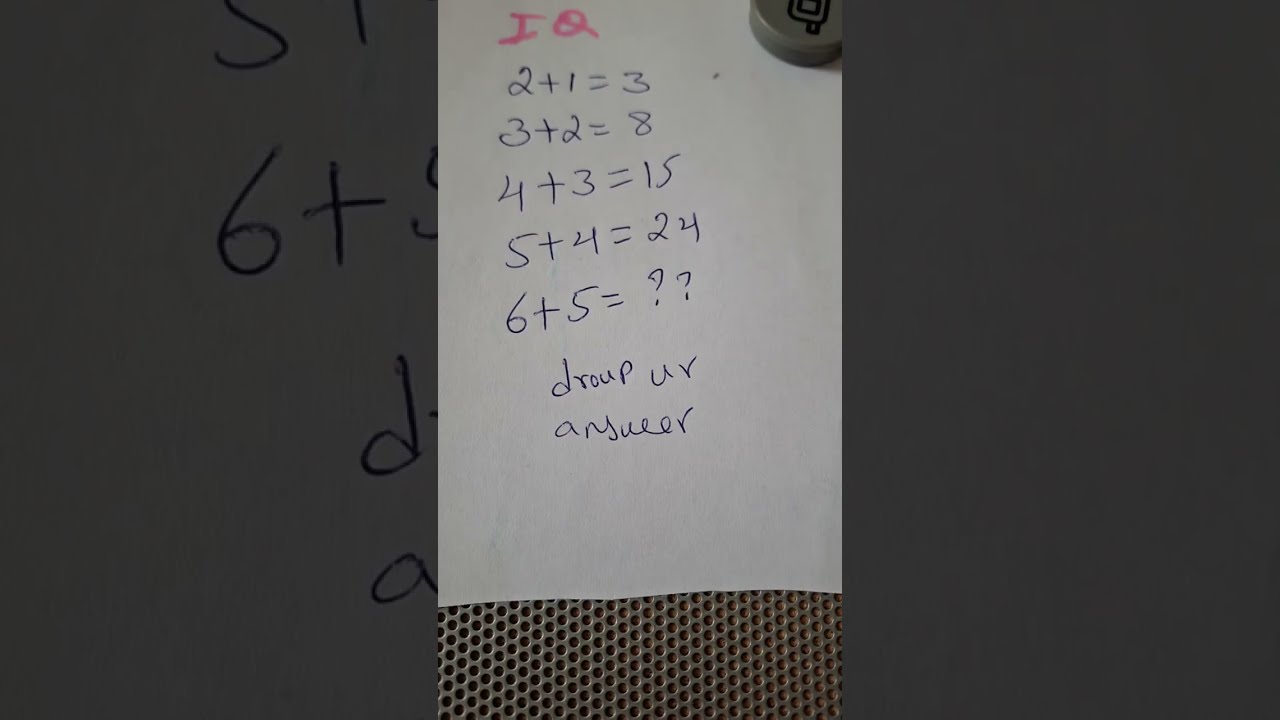 IQ
2+1=3
3+2=8
4+3=15
5+4=24
6+5=??
droup ur
answer